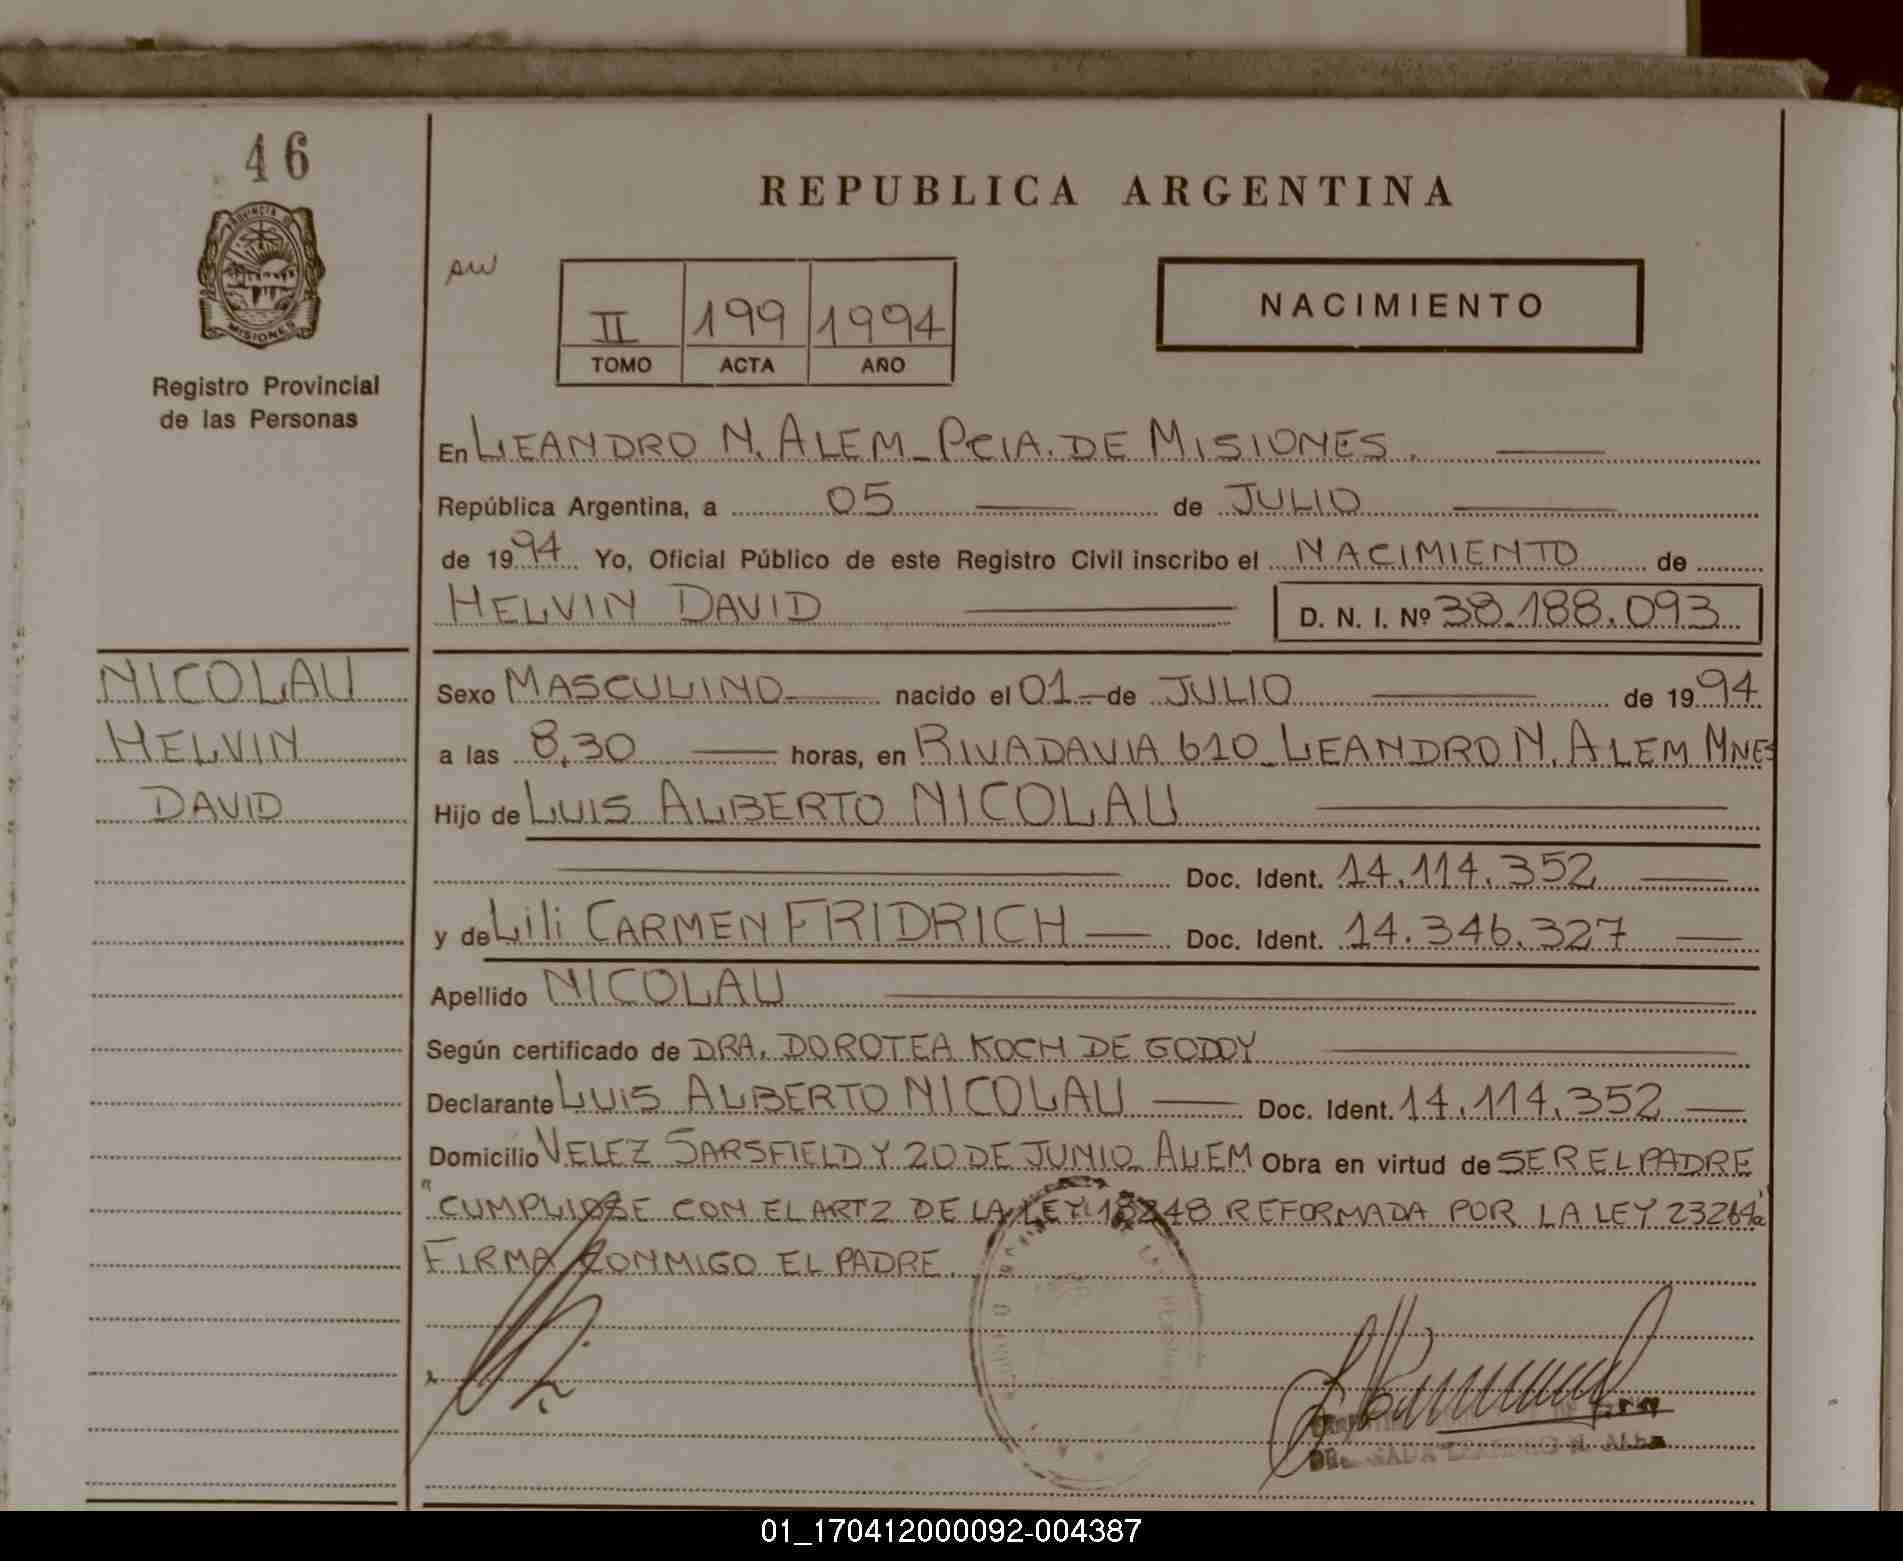 46
PROVINCIA D
MISIONES
Registro Provincial
de las Personas
REPUBLICA ARGENTINA
II 199 1994
TOMO ACTA AÑO
NACIMIENTO
En LEANDRO N. ALEM_PCIA. DE MISIONES.
República Argentina, a 05 de JULIO
de 1994 Yo, Oficial Público de este Registro Civil inscribo el NACIMIENTO de
HELVIN DAVID D. N. I. Nº 38.188.093
NICOLAU
HELVIN
DAVID
Sexo MASCULINO nacido el 01 de JULIO de 1994
a las 8,30 horas, en RIVADAVIA 610_LEANDRO N. ALEM MNES
Hijo de LUIS ALBERTO NICOLAU
Doc. Ident. 14.114.352
y de Lili CARMEN FRIDRICH Doc. Ident. 14.346.327
Apellido NICOLAU
Según certificado de DRA. DOROTEA KOCH DE GODOY
Declarante LUIS ALBERTO NICOLAU Doc. Ident. 14.114.352
Domicilio VELEZ SARSFIELD Y 20 DE JUNIO_ALEM Obra en virtud de SER EL PADRE
"CUMPLIOSE CON EL ART2 DE LA LEY 18248 REFORMADA POR LA LEY 23264"
FIRMA CONMIGO EL PADRE.
01_170412000092-004387